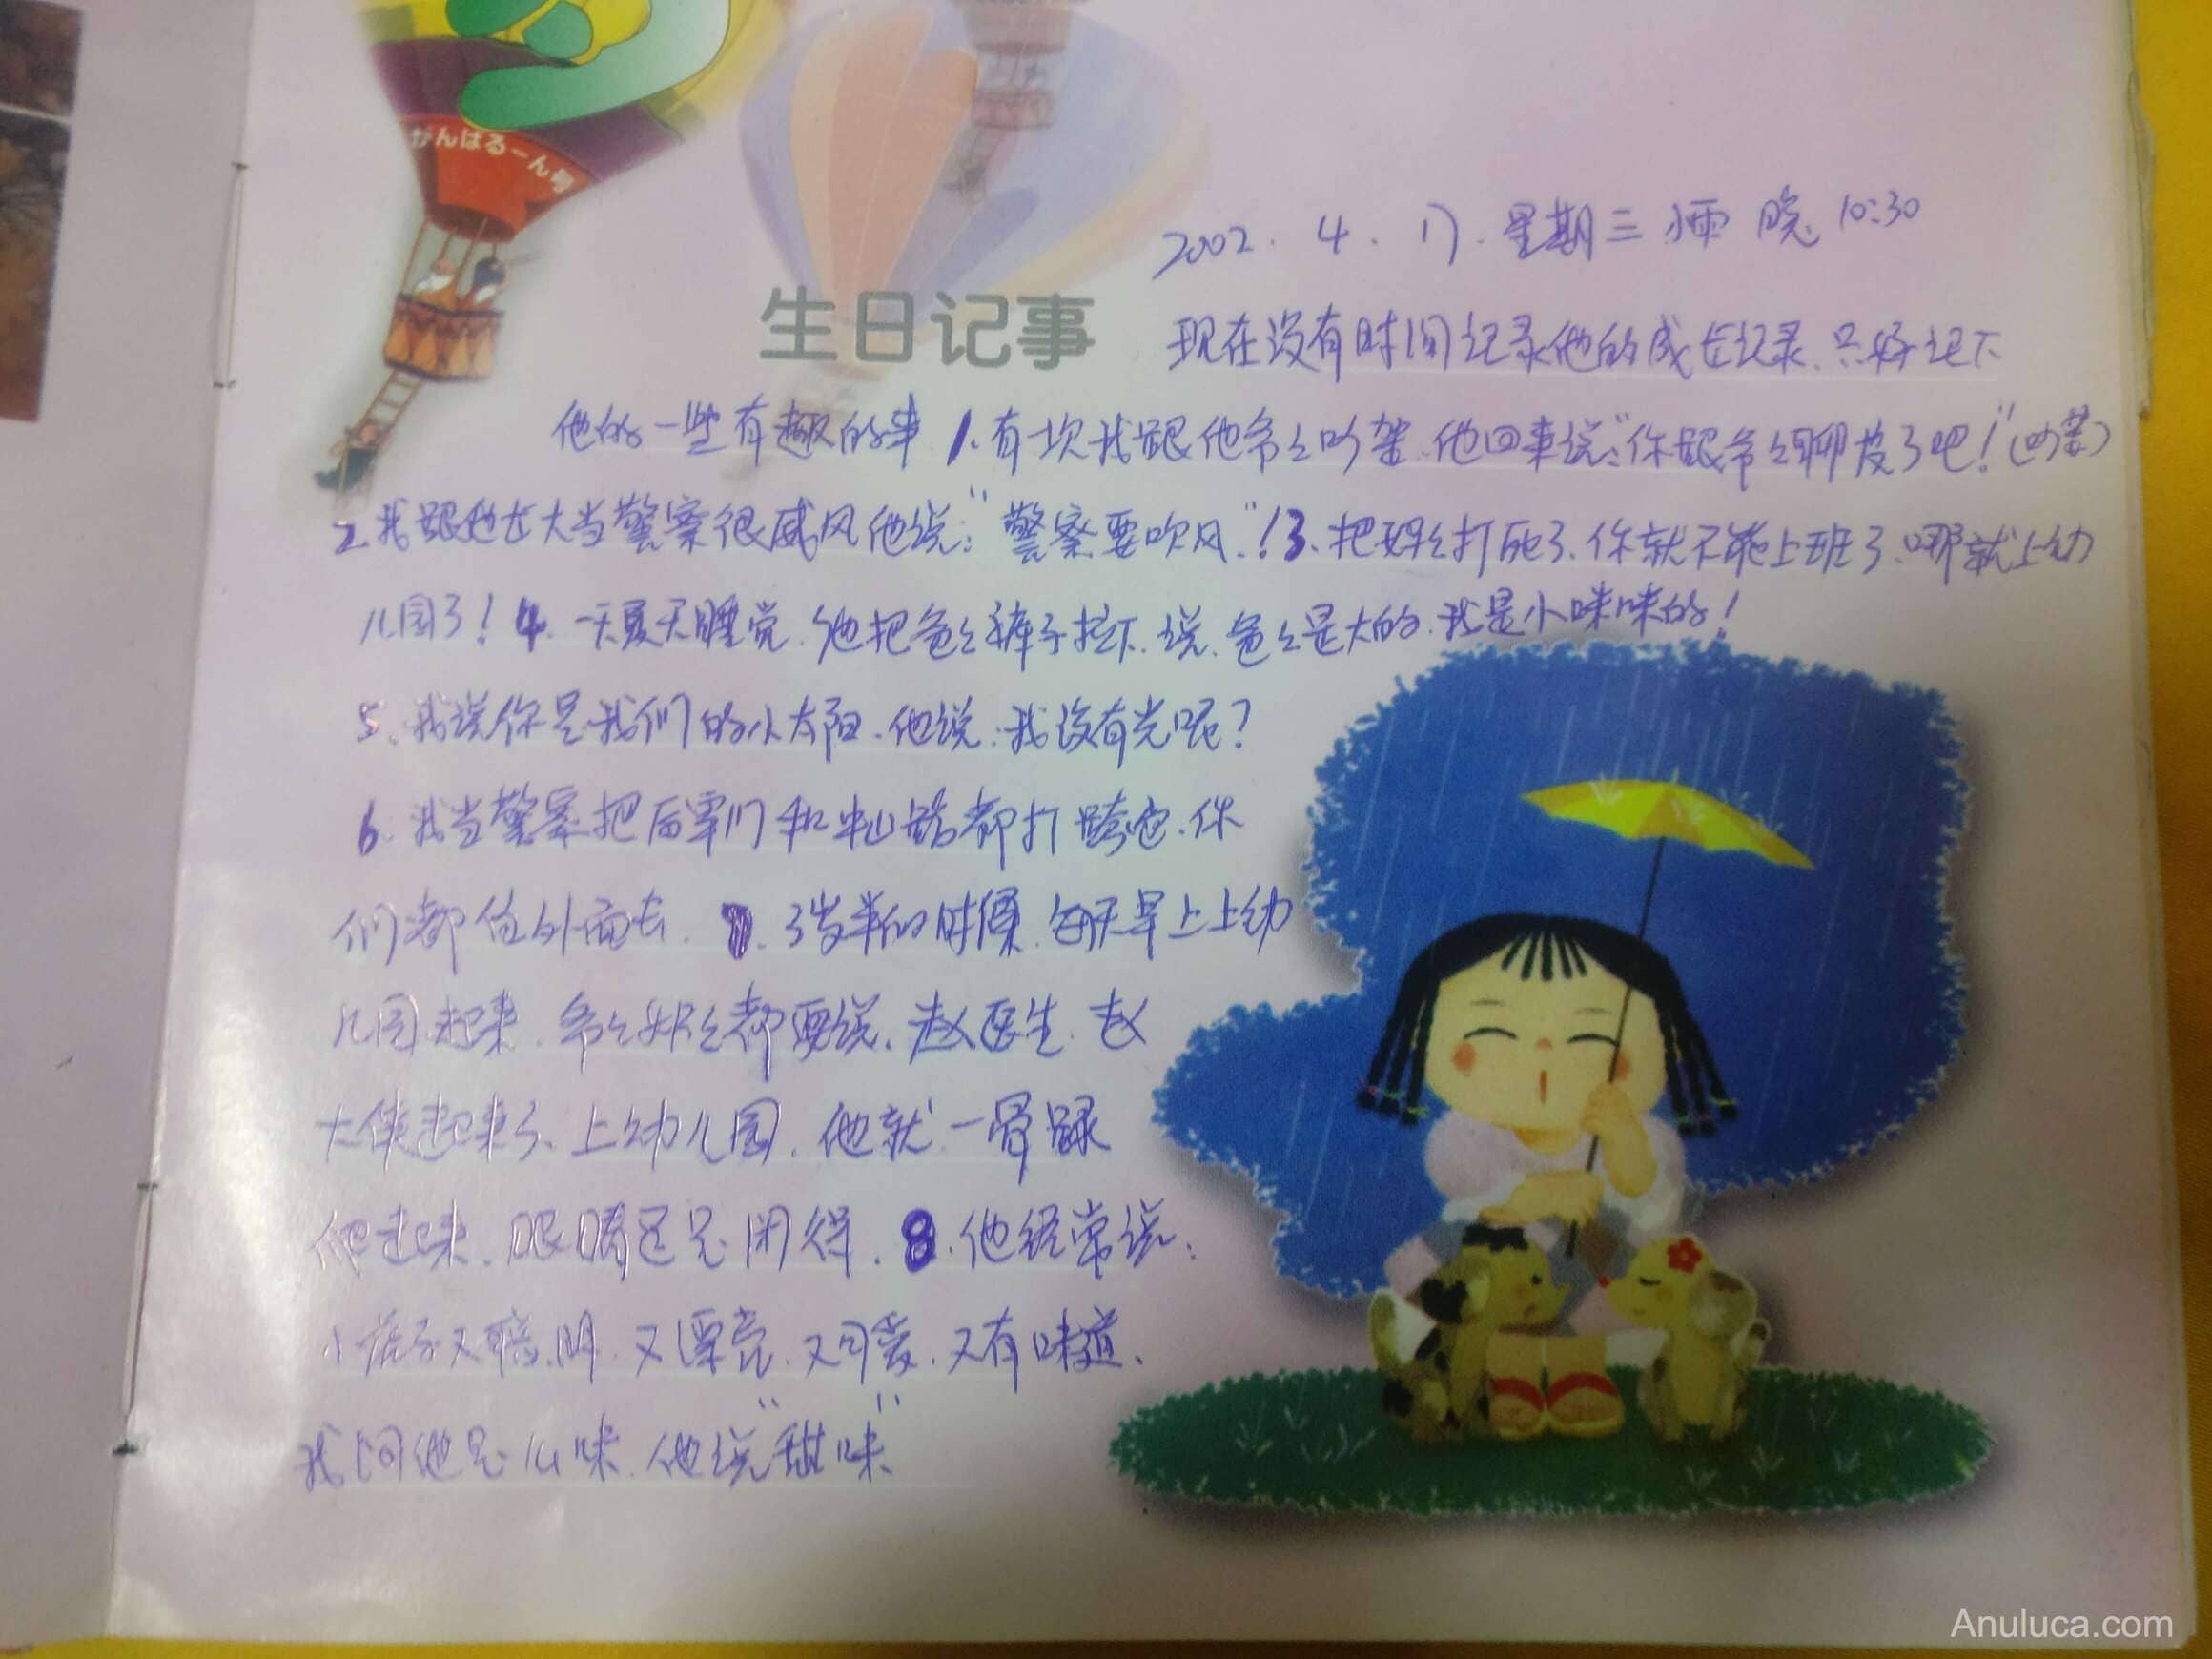 がんばるーん号
生日记事
2002.4.17.星期三 小雨 晚10:30
现在没有时间记录他的成长记录.只好记下
他的一些有趣的事 1.有一次我跟他爷々吵架.他回来说:"你跟爷々聊发了吧!"(吵架)
2.我跟他长大当警察很威风他说:"警察要吹风."!3.把妈々打死了.你就不能上班了.哪就上幼
儿园了!4.一天夏天睡觉.他把爸々裤子拉下.说.爸々是大的.我是小咪咪的!
5.我说你是我们的小太阳.他说:我没有光呢?
6.我当警察把后宰门和中山路都打垮它.你
们都住外面去.7.3岁半的时候.每天早上上幼
儿园起来.爷々奶々都要说.赵医生.赵
大侠起来了、上幼儿园.他就一骨碌
爬起来.眼睛还是闭得.8.他经常说:
小孩子又聪明.又漂亮.又可爱.又有味道.
我问他是么味.他说"甜味"
Anuluca.com